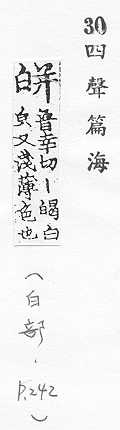 30 四聲篇海
皏 普幸切丨㿣白
皃又淺薄色也
（白部．P.242）